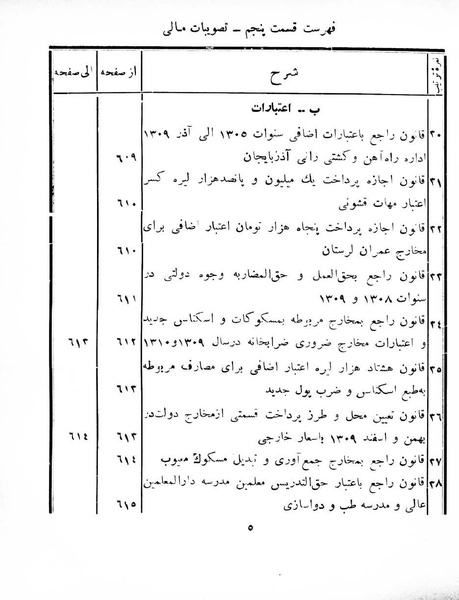 فهرست قسمت پنجم ــ تصویبات مالی
نمرهٔ ترتیب شرح از صفحه الی صفحه
ب ــ اعتبارات
۲۰ قانون راجع باعتبارات اضافی سنوات ۱۳۰۵ الی آذر ۱۳۰۹
اداره راه‌آهن و کشتی رانی آذربایجان ۶۰۹
۲۱ قانون اجازه پرداخت یك میلیون و پانصدهزار لیره کسر
اعتبار مهات قشونی ۶۱۰
۲۲ قانون اجازه پرداخت پنجاه هزار تومان اعتبار اضافی برای
مخارج عمران لرستان ۶۱۰
۲۳ قانون راجع بحق‌العمل و حق‌المضاربه وجوه دولتی در
سنوات ۱۳۰۸ و ۱۳۰۹ ۶۱۱
۲٤ قانون راجع بمخارج مربوطه بمسکوکات و اسکناس جدید
و اعتبارات مخارج ضروری ضرابخانه درسال ۱۳۰۹و۱۳۱۰ ۶۱۲ ۶۱۳
۲۵ قانون هشتاد هزار لیره اعتبار اضافی برای مصارف مربوطه
به‌طبع اسکناس و ضرب پول جدید ۶۱۳
۲۶ قانون تعیین محل و طرز پرداخت قسمتی ازمخارج دولت‌در
بهمن و اسفند ۱۳۰۹ باسعار خارجی ۶۱۳ ۶۱٤
۲۷ قانون راجع بمخارج جمع‌آوری و تبدیل مسکوك معیوب ۶۱٤
۲۸ قانون راجع باعتبار حق‌التدریس معلمین مدرسه دارالمعلمین
عالی و مدرسه طب و دواسازی ۶۱۵
۵